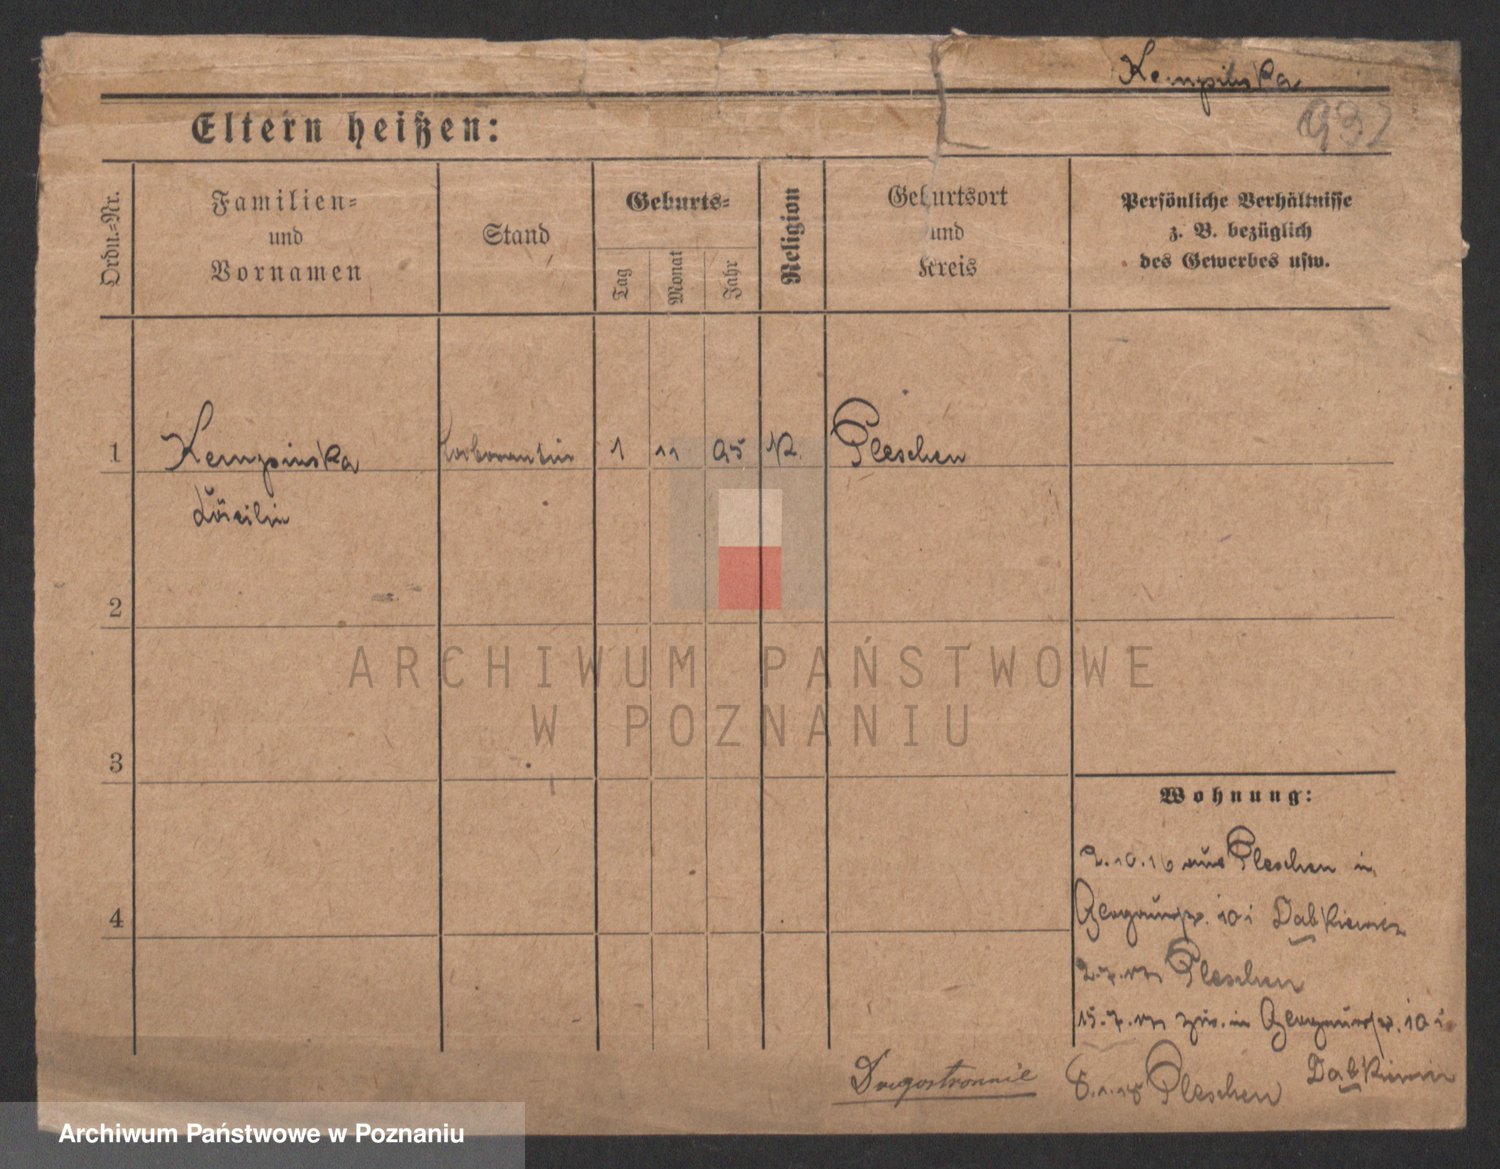 Kempinska
932
Eltern heißen:
Ordn.-Nr.
Familien-
und
Vornamen
Stand
Geburts-
Tag
Monat
Jahr
Religion
Geburtsort
und
Kreis
Persönliche Verhältnisse
z. B. bezüglich
des Gewerbes usw.
1
Kempinska
1
11
95
K.
Pleschen
Cäcilie
2
3
4
Wohnung:
2.10.16 aus Pleschen in
101 Dabkiewicz
Pleschen
15.7.17 in 101
Dabkiewicz
8.1.18 Pleschen
ARCHIWUM PAŃSTWOWE
W POZNANIU
Archiwum Państwowe w Poznaniu